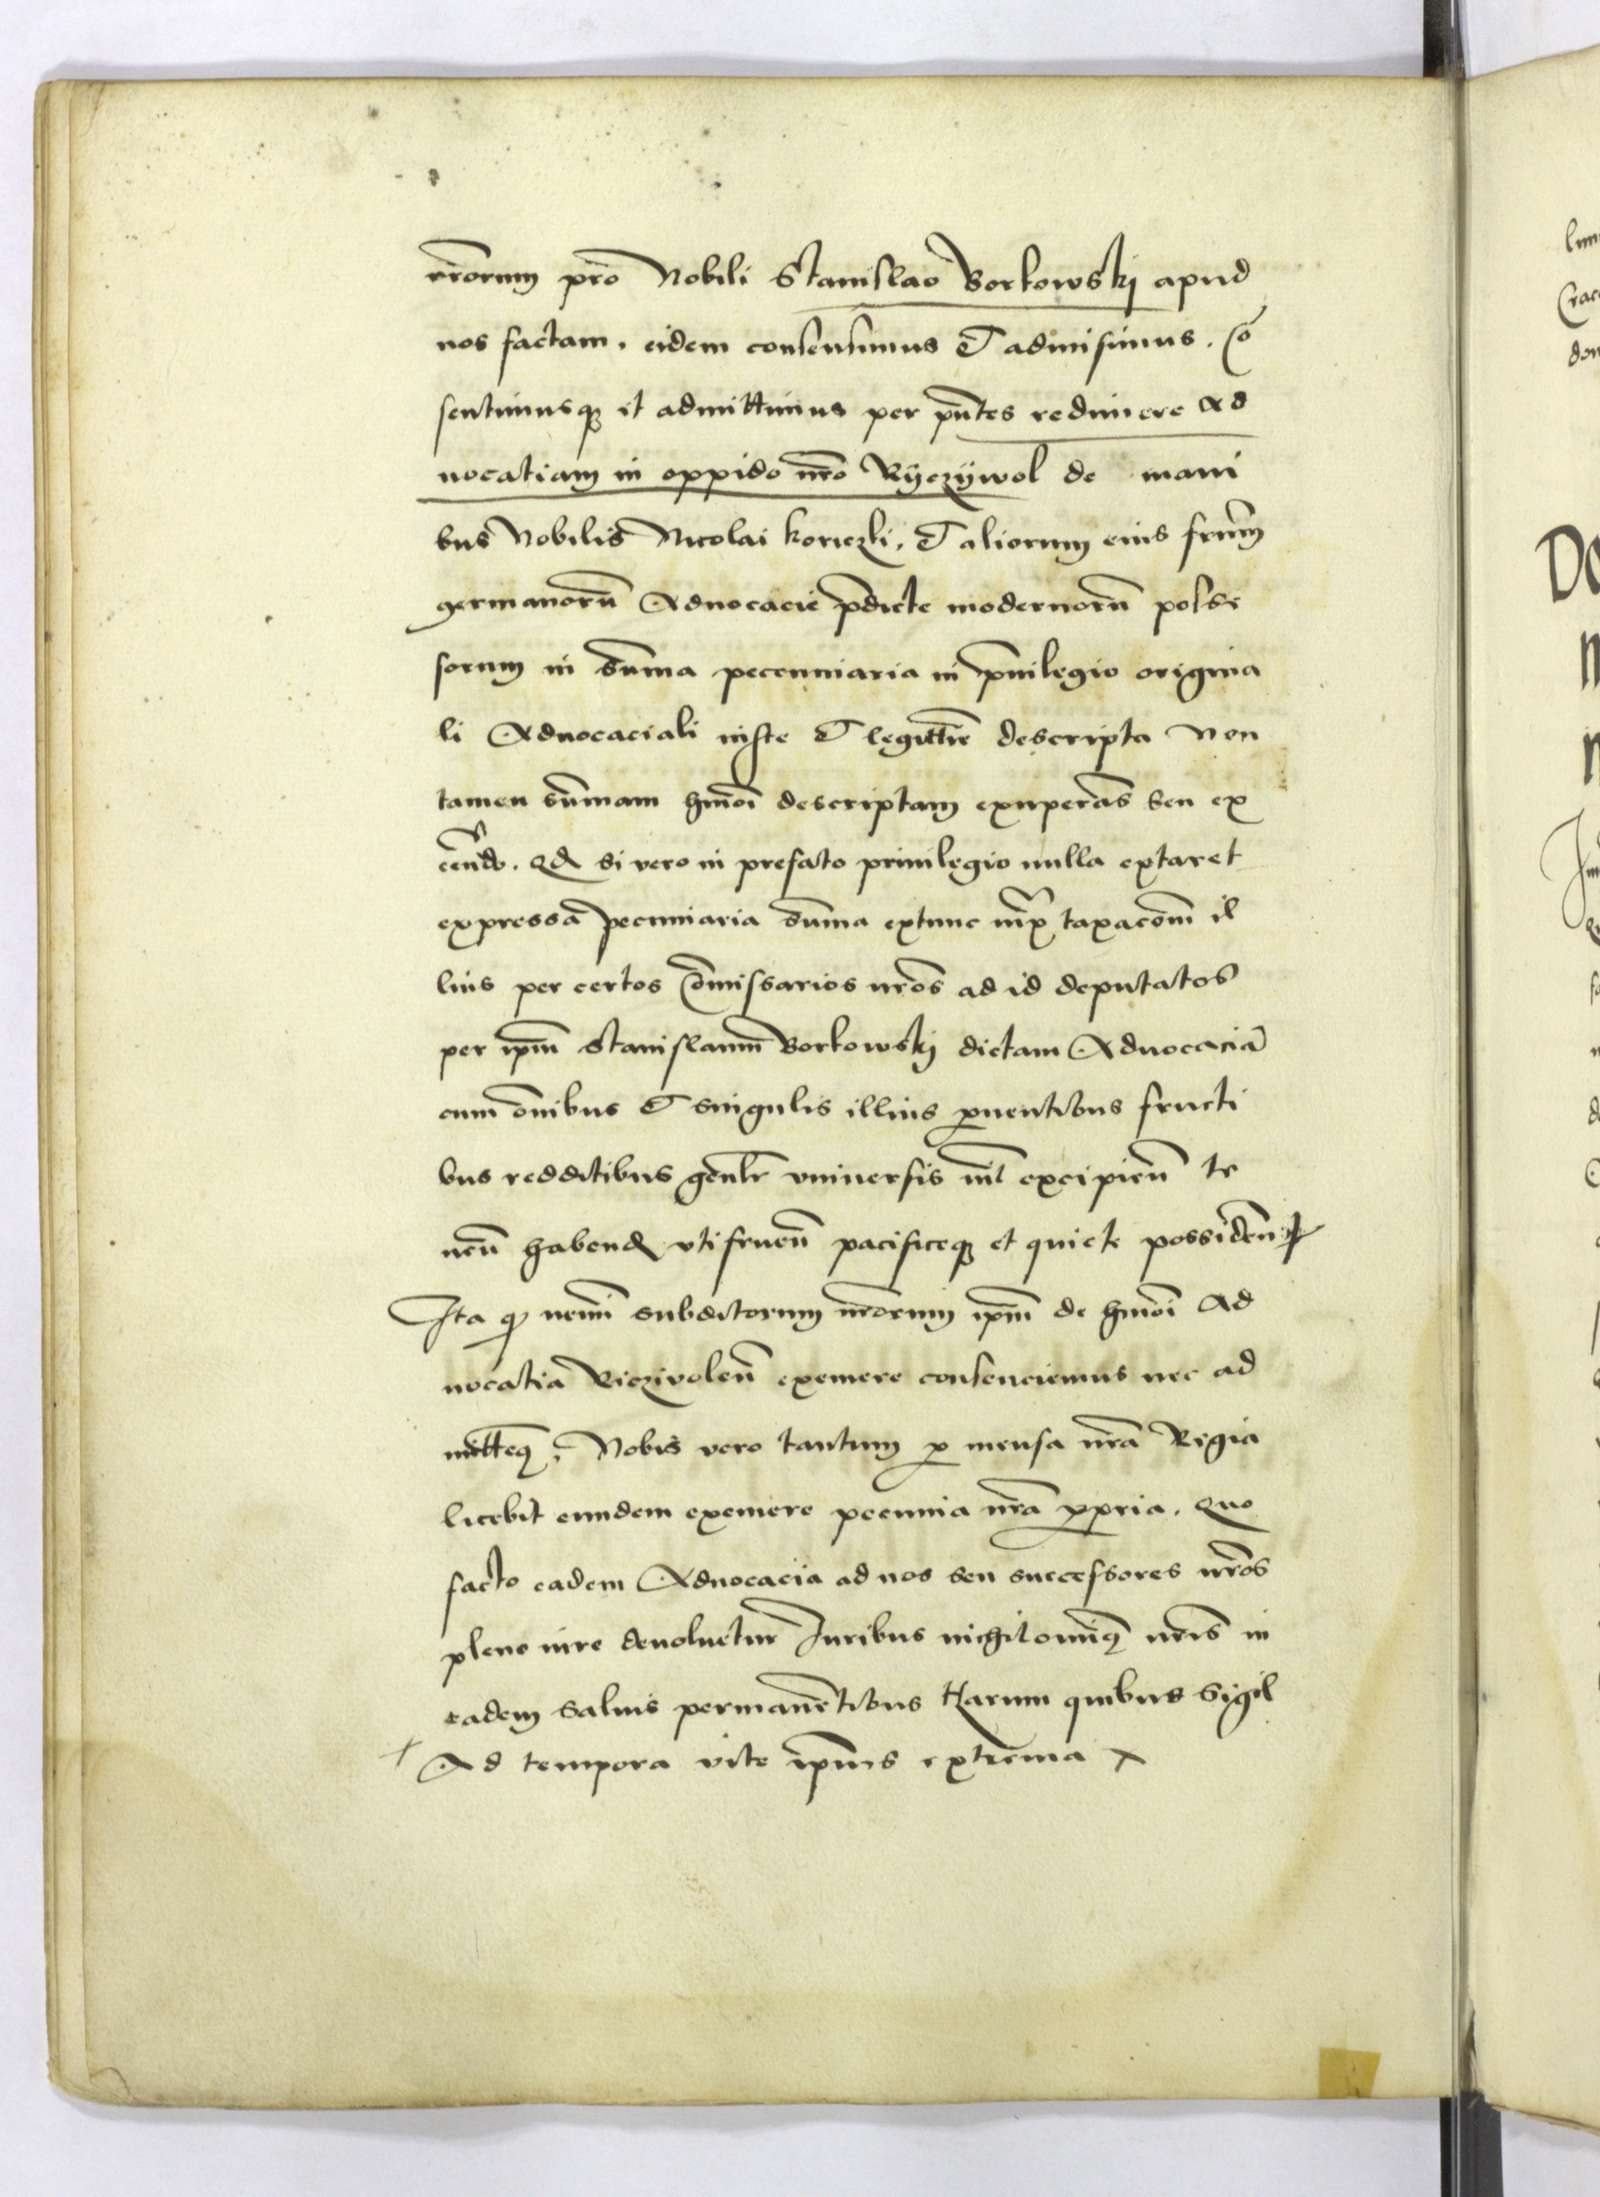 nrōrum pro Nobili Stanislao Borkowskj apud
nos factam. eidem consensimus et admisimus. Cō
sentimusqꝫ et admittimus per pūtes redimere Ad
uocatiam in oppido nrō Ryczywol de mani
bus Nobilis Nicolai koriczki, et aliorum eius frm̄
germanorū Aduocacie p̄dicte modernorū posse
sorum in sum̄a pecunniaria in priuilegio origina
li Aduocaciali iuste et legittīe descripta Non
tamen sum̄am hmōi descriptam exuperās seu ex
cen̄do. Qd si vero in prefato priuilegio nulla extaret
expressa pecuniaria sum̄a extunc iux̄ taxacōm il
lius per certos Cōmissarios nrōs ad id deputatos
per ipm̄ Stanislaum Borkowskj dictam Aduocaciā
cum ōnibus et singulis illius ꝓuentibus fructi
bus redditibus genlr̄ vniuersis nīl excipien̄ te
nen̄ habend vtifruen̄ pacificeqꝫ et quiete possiden̄ ✝
Ita ꝙ nemī subditorum nrōrum ipm̄ de hmōi Ad
uocatia Riczivolen̄ exemere consenciemus nec ad
mittemꝰ, Nobis vero tantum ꝓ mensa nrā Regia
licebit eundem exemere pecunia nrā ꝓpria. Quo
facto eadem Aduocacia ad nos seu successores nrōs
pleno iure deuoluetur Iuribus nichilominꝰ nrīs in
eadem saluis permanētibus Harum quibus Sigil
✝ Ad tempora vite ipīus extrema ✝